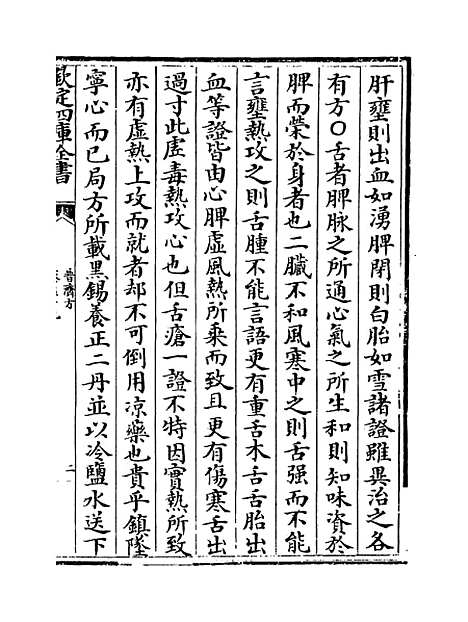 肝壅則出血如湧脾閉則白胎如雪諸證雖異治之各
有方〇舌者脾脉之所通心氣之所生和則知味資於
脾而榮於身者也二臟不和風寒中之則舌强而不能
言壅熱攻之則舌腫不能言語更有重舌木舌舌胎出
血等證皆由心脾虚風熱所乘而致且更有傷寒舌出
過寸此虚毒熱攻心也但舌瘡一證不特因實熱所致
亦有虚熱上攻而就者却不可倒用凉藥也貴乎鎮墜
寧心而已局方所載黒錫養正二丹並以冷鹽水送下
欽定四庫全書
普濟方
二